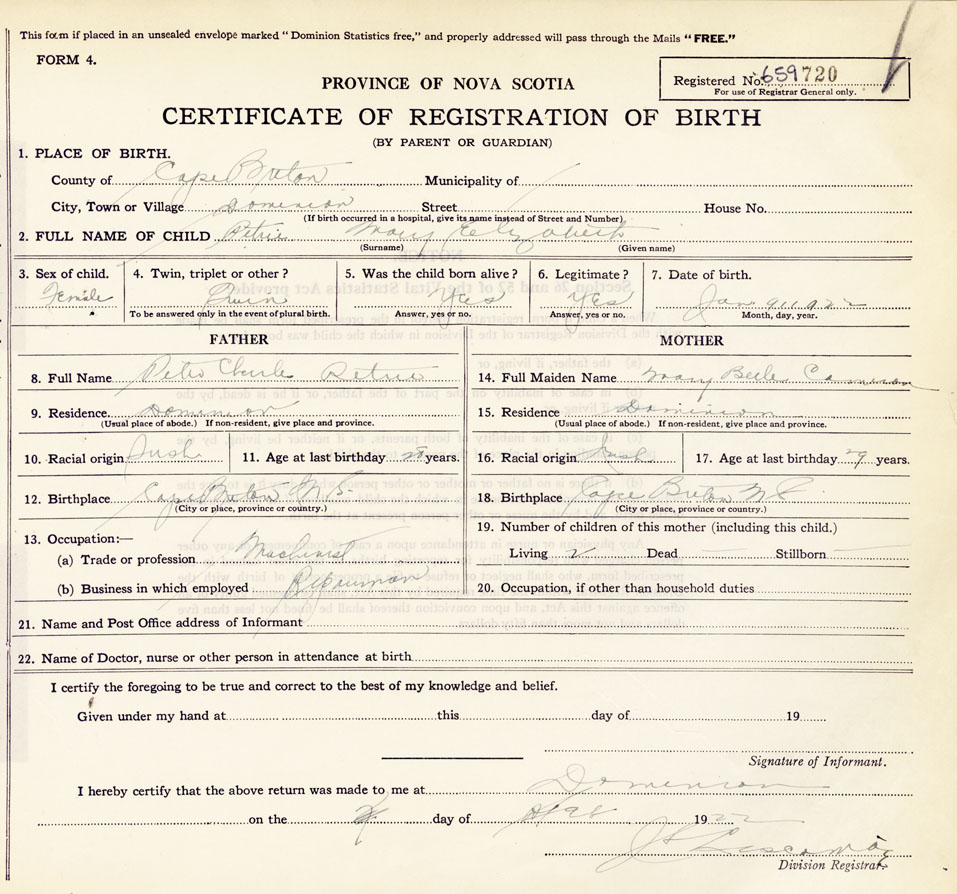 This form if placed in an unsealed envelope marked “Dominion Statistics free,” and properly addressed will pass through the Mails “FREE.”
FORM 4.
Registered No. 659720
For use of Registrar General only.
PROVINCE OF NOVA SCOTIA
CERTIFICATE OF REGISTRATION OF BIRTH
(BY PARENT OR GUARDIAN)
1. PLACE OF BIRTH.
County of Cape Breton Municipality of
City, Town or Village Dominion Street House No.
(If birth occurred in a hospital, give its name instead of Street and Number)
2. FULL NAME OF CHILD Petrie Mary Elizabeth
(Surname) (Given name)
3. Sex of child. 4. Twin, triplet or other? 5. Was the child born alive? 6. Legitimate? 7. Date of birth.
Female Twin Yes Yes Jan 9th 1922
To be answered only in the event of plural birth. Answer, yes or no. Answer, yes or no. Month, day, year.
FATHER MOTHER
8. Full Name Peter Charles Petrie
14. Full Maiden Name Mary Belle
9. Residence Dominion
15. Residence Dominion
(Usual place of abode.) If non-resident, give place and province.
(Usual place of abode.) If non-resident, give place and province.
10. Racial origin Irish 11. Age at last birthday years.
16. Racial origin Irish 17. Age at last birthday 29 years.
12. Birthplace Cape Breton N.S.
18. Birthplace Cape Breton N S
(City or place, province or country.)
(City or place, province or country.)
13. Occupation:—
19. Number of children of this mother (including this child.)
(a) Trade or profession Machinist
Living 2 Dead Stillborn
(b) Business in which employed Repairman
20. Occupation, if other than household duties
21. Name and Post Office address of Informant
22. Name of Doctor, nurse or other person in attendance at birth
I certify the foregoing to be true and correct to the best of my knowledge and belief.
Given under my hand at this day of 19
Signature of Informant.
I hereby certify that the above return was made to me at Dominion
on the day of 1922
Division Registrar.